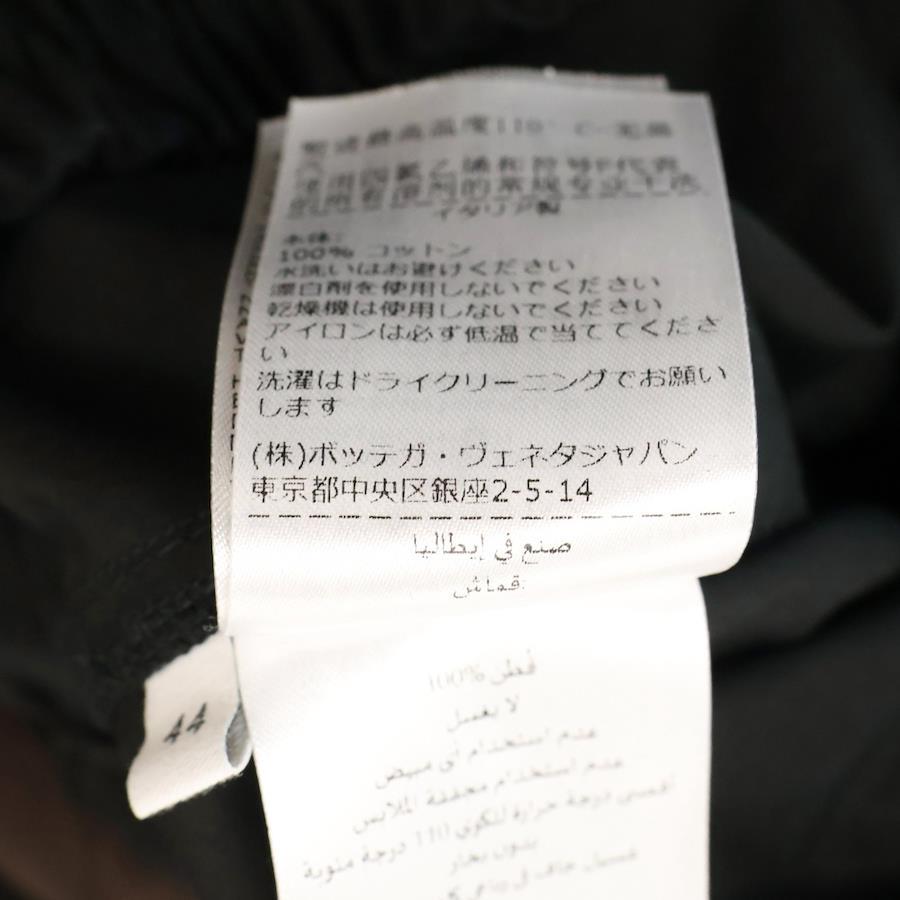 熨烫最高温度110° C-无蒸
汽
使用四氯乙烯和符号F代表
的所有溶剂的常规专业干洗
イタリア製
本体:
100% コットン
水洗いはお避けください
漂白剤を使用しないでください
乾燥機は使用しないでください
アイロンは必ず低温で当ててくださ
い
洗濯はドライクリーニングでお願い
します
(株)ボッテガ・ヴェネタジャパン
東京都中央区銀座2-5-14
صنع في إيطاليا
قماش:
قطن 100%
لا يغسل
عدم استخدام أي مبيض
عدم استخدام مجففة الملابس
أقصى درجة حرارة للكوي 110 درجة مئوية
بدون بخار
غسيل جاف في
44